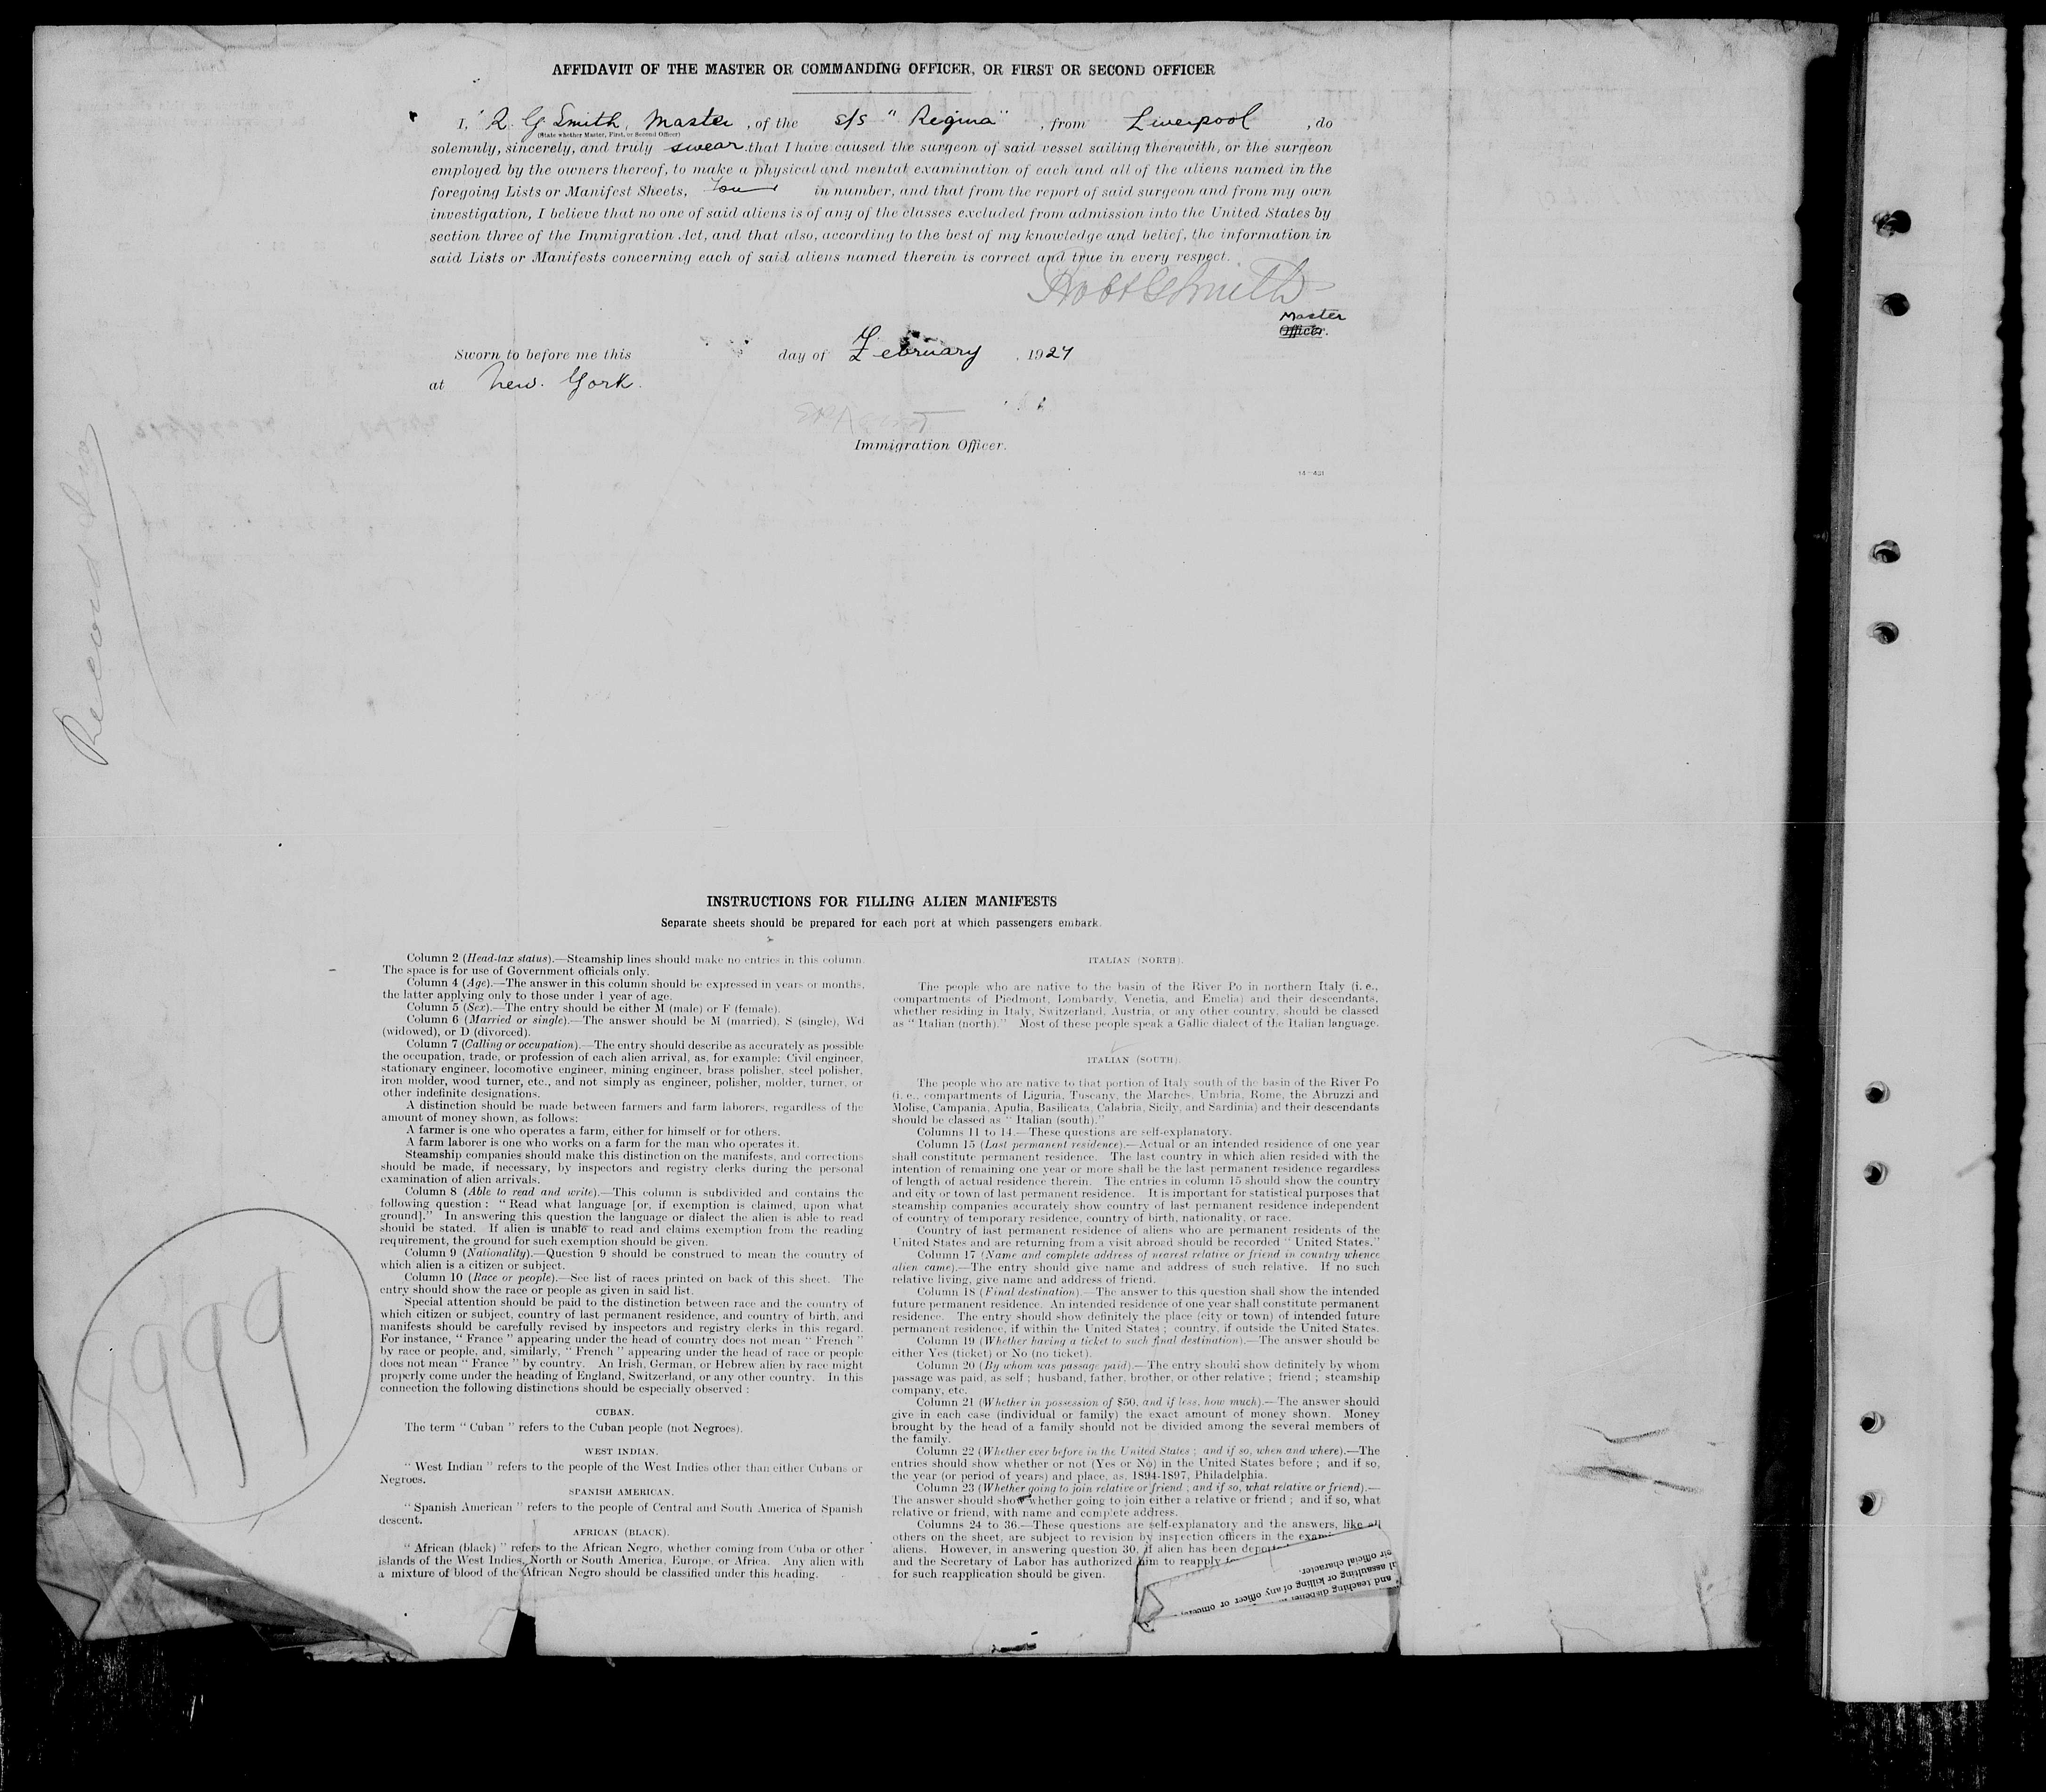 AFFIDAVIT OF THE MASTER OR COMMANDING OFFICER, OR FIRST OR SECOND OFFICER
I, R. G Smith, Master, of the S/S "Regina", from Liverpool, do
(State whether Master, First, or Second Officer)
solemnly, sincerely, and truly swear that I have caused the surgeon of said vessel sailing therewith, or the surgeon
employed by the owners thereof, to make a physical and mental examination of each and all of the aliens named in the
foregoing Lists or Manifest Sheets, in number, and that from the report of said surgeon and from my own
investigation, I believe that no one of said aliens is of any of the classes excluded from admission into the United States by
section three of the Immigration Act, and that also, according to the best of my knowledge and belief, the information in
said Lists or Manifests concerning each of said aliens named therein is correct and true in every respect.
Robt G Smith
Master
Officer.
Sworn to before me this day of February, 1927
at New York.
Immigration Officer.
14—431
Record
999
INSTRUCTIONS FOR FILLING ALIEN MANIFESTS
Separate sheets should be prepared for each port at which passengers embark.
Column 2 (Head-tax status).—Steamship lines should make no entries in this column.
The space is for use of Government officials only.
Column 4 (Age).—The answer in this column should be expressed in years or months,
the latter applying only to those under 1 year of age.
Column 5 (Sex).—The entry should be either M (male) or F (female).
Column 6 (Married or single).—The answer should be M (married), S (single), Wd
(widowed), or D (divorced).
Column 7 (Calling or occupation).—The entry should describe as accurately as possible
the occupation, trade, or profession of each alien arrival, as, for example: Civil engineer,
stationary engineer, locomotive engineer, mining engineer, brass polisher, steel polisher,
iron molder, wood turner, etc., and not simply as engineer, polisher, molder, turner, or
other indefinite designations.
A distinction should be made between farmers and farm laborers, regardless of the
amount of money shown, as follows:
A farmer is one who operates a farm, either for himself or for others.
A farm laborer is one who works on a farm for the man who operates it.
Steamship companies should make this distinction on the manifests, and corrections
should be made, if necessary, by inspectors and registry clerks during the personal
examination of alien arrivals.
Column 8 (Able to read and write).—This column is subdivided and contains the
following question: "Read what language [or, if exemption is claimed, upon what
ground]." In answering this question the language or dialect the alien is able to read
should be stated. If alien is unable to read and claims exemption from the reading
requirement, the ground for such exemption should be given.
Column 9 (Nationality).—Question 9 should be construed to mean the country of
which alien is a citizen or subject.
Column 10 (Race or people).—See list of races printed on back of this sheet. The
entry should show the race or people as given in said list.
Special attention should be paid to the distinction between race and the country of
which citizen or subject, country of last permanent residence, and country of birth, and
manifests should be carefully revised by inspectors and registry clerks in this regard.
For instance, "France" appearing under the head of country does not mean "French"
by race or people, and, similarly, "French" appearing under the head of race or people
does not mean "France" by country. An Irish, German, or Hebrew alien by race might
properly come under the heading of England, Switzerland, or any other country. In this
connection the following distinctions should be especially observed:
CUBAN.
The term "Cuban" refers to the Cuban people (not Negroes).
WEST INDIAN.
"West Indian" refers to the people of the West Indies other than either Cubans or
Negroes.
SPANISH AMERICAN.
"Spanish American" refers to the people of Central and South America of Spanish
descent.
AFRICAN (BLACK).
"African (black)" refers to the African Negro, whether coming from Cuba or other
islands of the West Indies, North or South America, Europe, or Africa. Any alien with
a mixture of blood of the African Negro should be classified under this heading.
ITALIAN (NORTH).
The people who are native to the basin of the River Po in northern Italy (i. e.,
compartments of Piedmont, Lombardy, Venetia, and Emelia) and their descendants,
whether residing in Italy, Switzerland, Austria, or any other country, should be classed
as "Italian (north)." Most of these people speak a Gallic dialect of the Italian language.
ITALIAN (SOUTH).
The people who are native to that portion of Italy south of the basin of the River Po
(i. e., compartments of Liguria, Tuscany, the Marches, Umbria, Rome, the Abruzzi and
Molise, Campania, Apulia, Basilicata, Calabria, Sicily, and Sardinia) and their descendants
should be classed as "Italian (south)."
Columns 11 to 14.—These questions are self-explanatory.
Column 15 (Last permanent residence).—Actual or an intended residence of one year
shall constitute permanent residence. The last country in which alien resided with the
intention of remaining one year or more shall be the last permanent residence regardless
of length of actual residence therein. The entries in column 15 should show the country
and city or town of last permanent residence. It is important for statistical purposes that
steamship companies accurately show country of last permanent residence independent
of country of temporary residence, country of birth, nationality, or race.
Country of last permanent residence of aliens who are permanent residents of the
United States and are returning from a visit abroad should be recorded "United States."
Column 17 (Name and complete address of nearest relative or friend in country whence
alien came).—The entry should give name and address of such relative. If no such
relative living, give name and address of friend.
Column 18 (Final destination).—The answer to this question shall show the intended
future permanent residence. An intended residence of one year shall constitute permanent
residence. The entry should show definitely the place (city or town) of intended future
permanent residence, if within the United States; country, if outside the United States.
Column 19 (Whether having a ticket to such final destination).—The answer should be
either Yes (ticket) or No (no ticket).
Column 20 (By whom was passage paid).—The entry should show definitely by whom
passage was paid, as self; husband, father, brother, or other relative; friend; steamship
company, etc.
Column 21 (Whether in possession of $50, and if less, how much).—The answer should
give in each case (individual or family) the exact amount of money shown. Money
brought by the head of a family should not be divided among the several members of
the family.
Column 22 (Whether ever before in the United States; and if so, when and where).—The
entries should show whether or not (Yes or No) in the United States before; and if so,
the year (or period of years) and place, as, 1894-1897, Philadelphia.
Column 23 (Whether going to join relative or friend; and if so, what relative or friend).—
The answer should show whether going to join either a relative or friend; and if so, what
relative or friend, with name and complete address.
Columns 24 to 36.—These questions are self-explanatory and the answers, like all
others on the sheet, are subject to revision by inspection officers in the
aliens. However, in answering question 30, if alien has been
and the Secretary of Labor has authorized him to reapply
for such reapplication should be given.
and teaching
assaulting or killing of any officer or
official character.